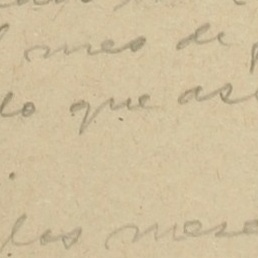 mes de
lo que as
los mese